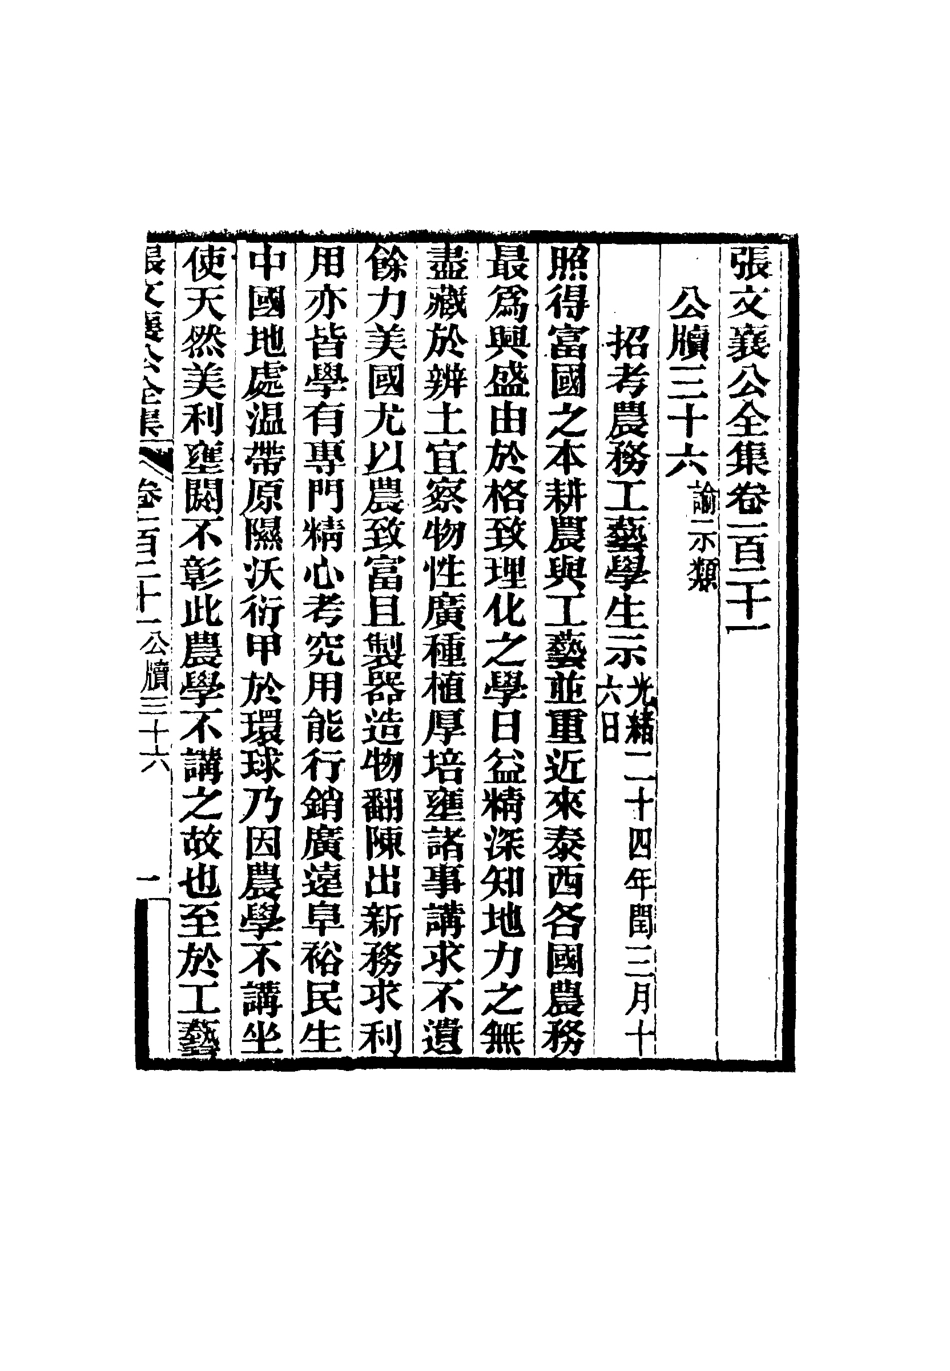 張文襄公全集卷一百二十一
公牘三十六諭示類
招考農務工藝學生示光緒二十四年閏三月十六日
照得富國之本耕農與工藝並重近來泰西各國農務
最爲興盛由於格致理化之學日益精深知地力之無
盡藏於辨土宜察物性廣種植厚培壅諸事講求不遺
餘力美國尤以農致富且製器造物翻陳出新務求利
用亦皆學有專門精心考究用能行銷廣遠阜裕民生
中國地處温帶原隰沃衍甲於環球乃因農學不講坐
使天然美利壅閼不彰此農學不講之故也至於工藝
張文襄公全集 卷一百二十一 公牘三十六 一